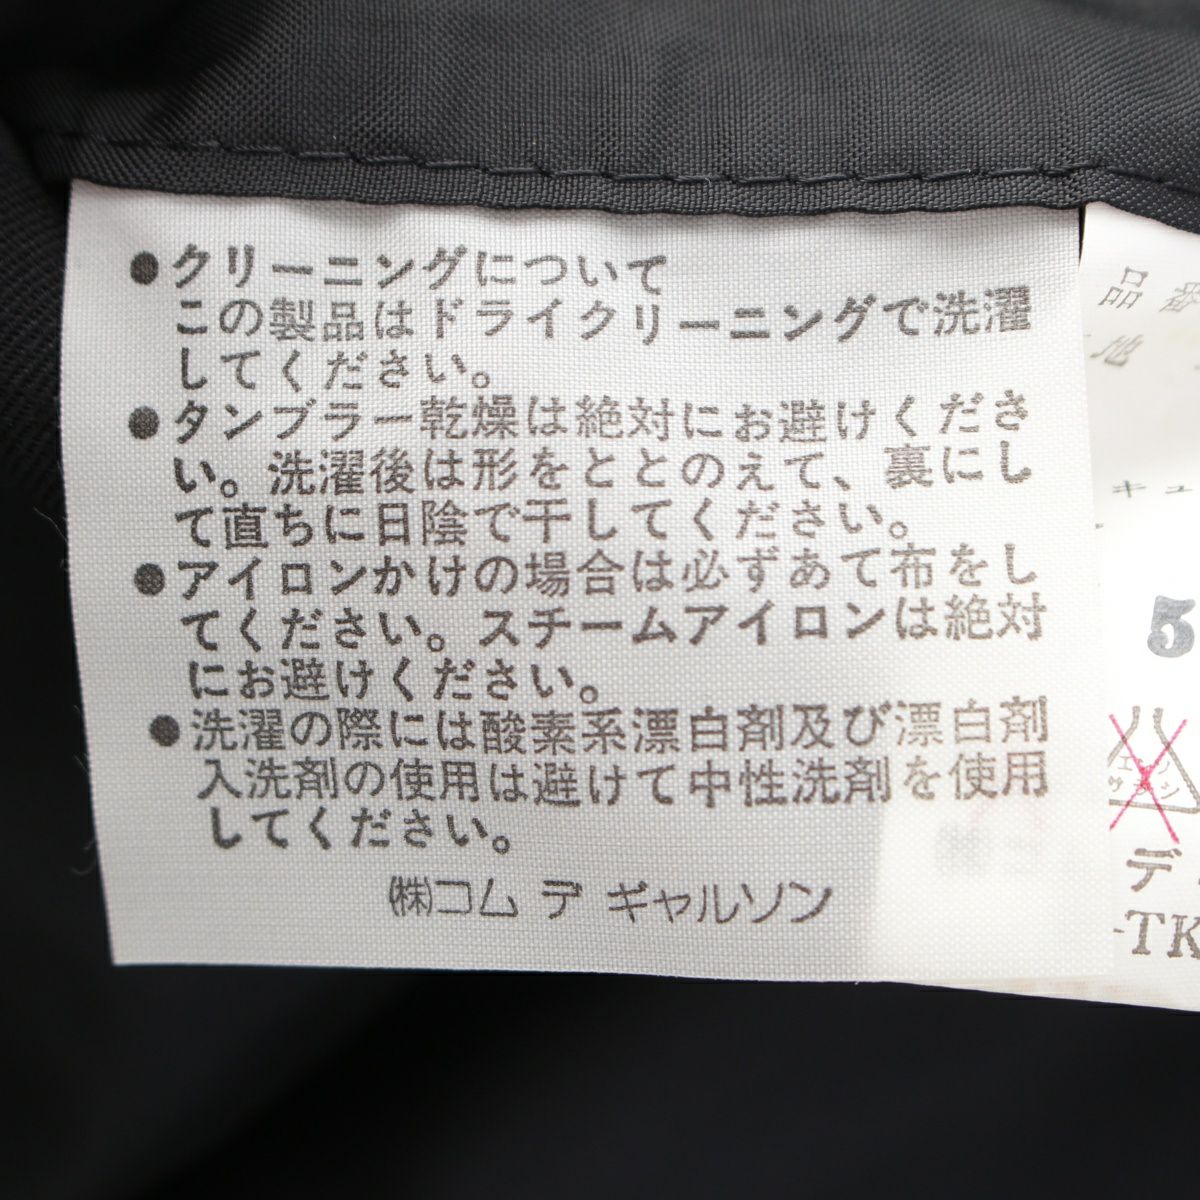 ●クリーニングについて
この製品はドライクリーニングで洗濯
してください。
●タンブラー乾燥は絶対にお避けくださ
い。洗濯後は形をととのえて、裏にし
て直ちに日陰で干してください。
●アイロンかけの場合は必ずあて布をし
てください。スチームアイロンは絶対
にお避けください。
●洗濯の際には酸素系漂白剤及び漂白剤
入洗剤の使用は避けて中性洗剤を使用
してください。
㈱コム デ ギャルソン
品番
地
キュ
5
エンソ
サラシ
デ
-TK